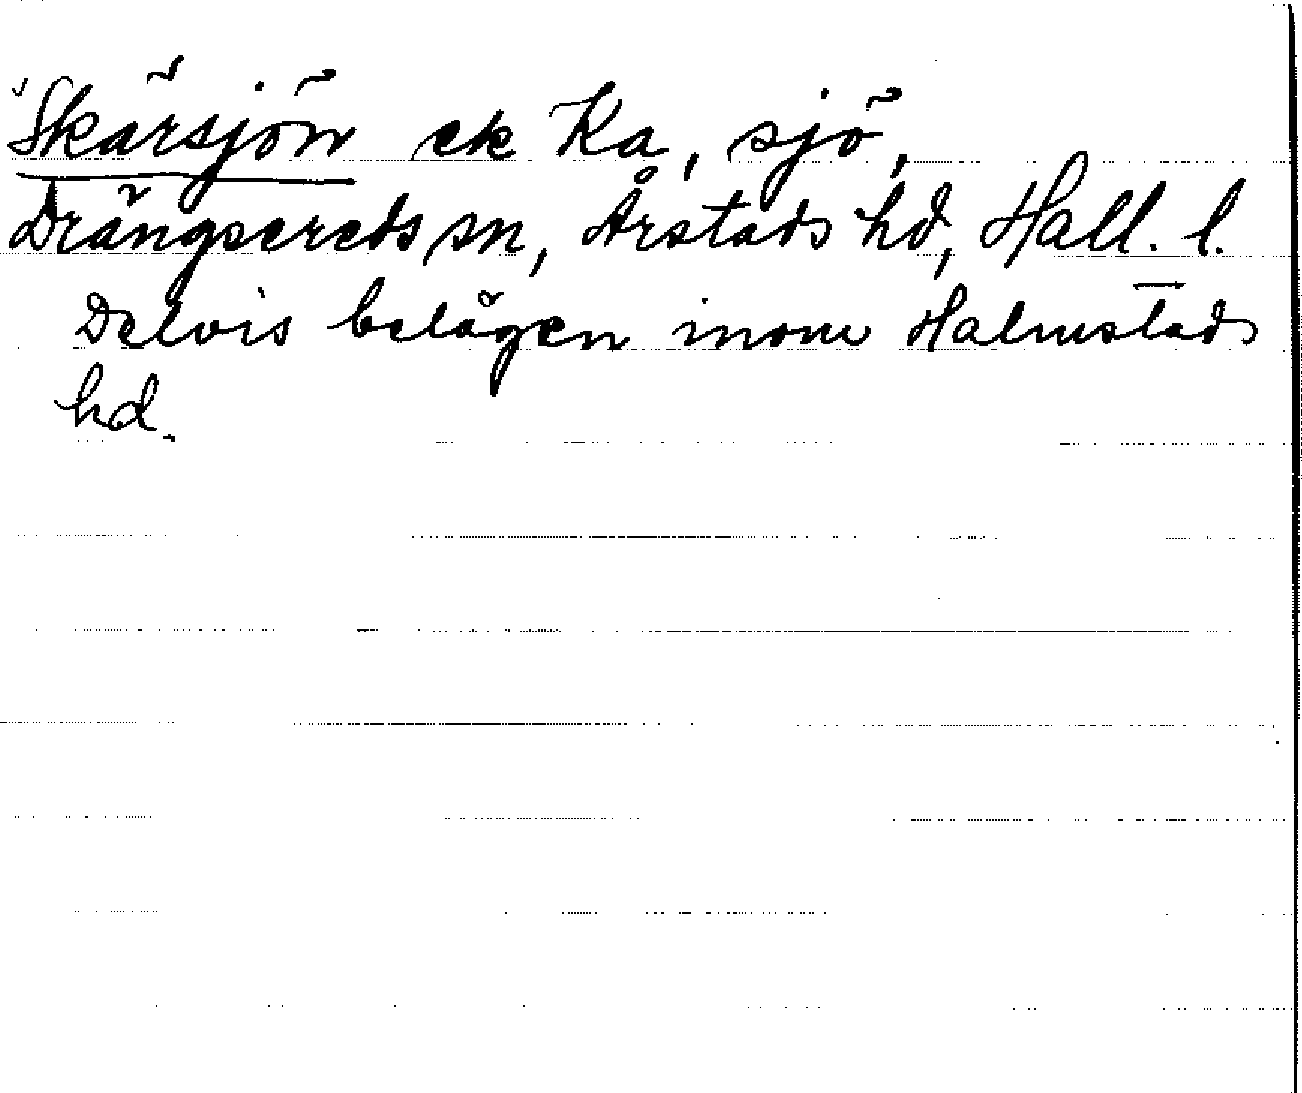 Skärsjön ek Ka, sjö,
Drängsereds sn, Årstads hd, Hall. l.
Delvis belägen inom Halmstads
hd.